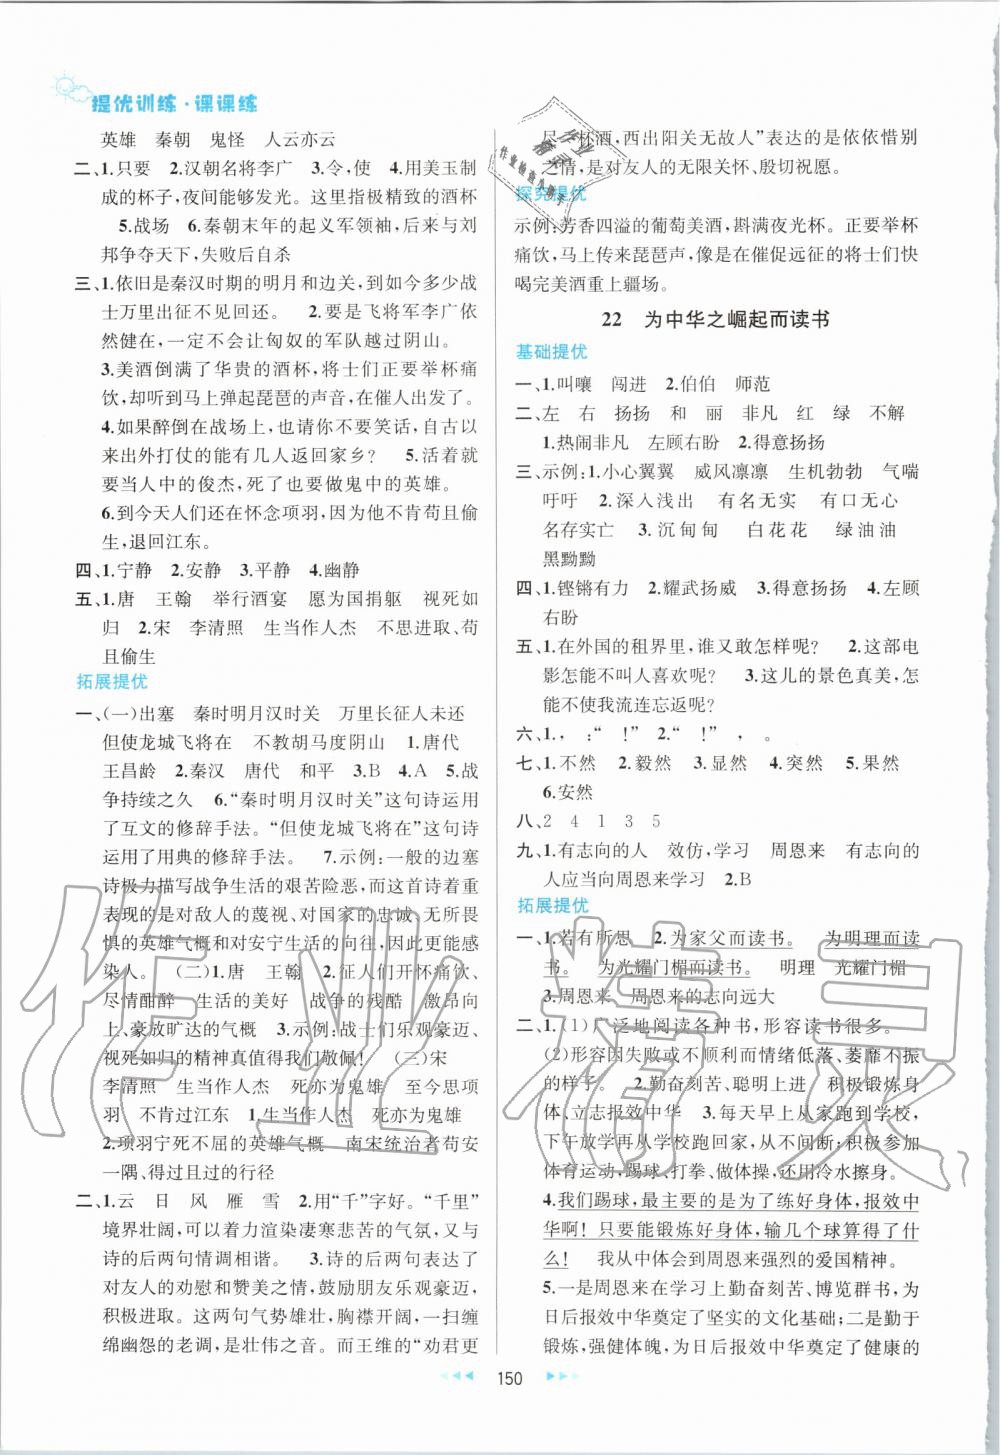 提优训练·课课练
英雄 秦朝 鬼怪 人云亦云
二、1.只要 2.汉朝名将李广 3.令,使 4.用美玉制
成的杯子,夜间能够发光。这里指极精致的酒杯
5.战场 6.秦朝末年的起义军领袖,在与刘
邦争夺天下,失败后自杀
三、1.依旧是秦汉时期的明月和边关,到如今多少战
士万里出征不见回还。 2.要是飞将军李广依
然健在,一定不会让匈奴的军队越过阴山。
3.美酒倒满了华贵的酒杯,将士们正要举杯痛
饮,却听到马上弹起琵琶的声音,在催人出战了。
4.如果醉倒在战场上,也请你们不要笑话,自古以
来出外打仗的能有几人返回家乡? 5.活着就
要当人中的俊杰,死了也要做鬼中的英雄。
6.到今天人们还在怀念项羽,因为他不肯苟且偷
生,退回江东。
四、1.宁静 2.安静 3.平静 4.幽静
五、1.唐 王翰 举行酒宴 愿为国捐躯 视死如
归 2.宋 李清照 生当作人杰 不思进取、苟
且偷生
拓展提优
一、(一)出塞 秦时明月汉时关 万里长征人未还
但使龙城飞将在 不教胡马度阴山 1.唐代
王昌龄 2.秦汉 唐代 和平 3.B 4.A 5.战
争持续之久 6.“秦时明月汉时关”这句诗运用
了互文的修辞手法。“但使龙城飞将在”这句诗
运用了用典的修辞手法。 7.示例:一般的边塞
诗极力描写战争生活的艰苦险恶,而这首诗着重
表现的是对敌人的蔑视、对国家的忠诚、无所畏
惧的英雄气概和对安宁生活的向往,因此更能感
染人。 (二)1.唐 王翰 2.征人们开怀痛饮、
尽情酣醉 生活的美好 战争的残酷 激昂向
上、豪放旷达的气概 3.示例:战士们乐观豪迈、
视死如归的精神真值得我们敬佩! (三)宋
李清照 生当作人杰 死亦为鬼雄 至今思项
羽 不肯过江东 1.生当作人杰 死亦为鬼雄
2.项羽宁死不屈的英雄气概 南宋统治者苟安
一隅、得过且过的行径
二、1.云 日 风 雁 雪 2.用“千”字好。“千里”
境界壮阔,可以着力渲染凄寒悲苦的气氛,又与
诗的后两句情调相谐。 3.诗的后两句表达了
对友人的劝慰和赞美之情,鼓励朋友乐观豪迈,
积极进取。这两句气势雄壮,胸襟开阔,一扫缠
绵幽怨的老调,是壮伟之音。而王维的“劝君更
尽一杯酒,西出阳关无故人”表达的是依依惜别
之情,是对友人的无限关怀、殷切祝愿。
探究提优
示例:芳香四溢的葡萄美酒,斟满夜光杯。正要举杯
痛饮,马上传来琵琶声,像是在催促远征的将士们快
喝完美酒重上疆场。
22 为中华之崛起而读书
基础提优
一、1.叫嚷 闯进 2.伯伯 师范
二、左 右 扬扬 和 丽 非凡 红 绿 不解
1.热闹非凡 左顾右盼 2.得意扬扬
三、示例:1.小心翼翼 威风凛凛 生机勃勃 气喘
吁吁 2.深入浅出 有名无实 有口无心
名存实亡 3.沉甸甸 白花花 绿油油
黑黝黝
四、1.铿锵有力 2.耀武扬威 3.得意扬扬 4.左顾
右盼
五、1.在外国的租界里,谁又敢怎样呢? 2.这部电
影怎能不叫人喜欢呢? 3.这儿的景色真美,怎
能不使我流连忘返呢?
六、1., :“ !” 2.“ !” , 。
七、1.不然 2.毅然 3.显然 4.突然 5.果然
6.安然
八、2 4 1 3 5
九、1.有志向的人 效仿,学习 周恩来 有志向的
人应当向周恩来学习 2.B
拓展提优
一、1.若有所思 2.为家父而读书。 为明理而读
书。 为光耀门楣而读书。 明理 光耀门楣
3.周恩来 周恩来的志向远大
二、1.(1)广泛地阅读各种书,形容读书很多。
(2)形容因失败或不顺利而情绪低落、萎靡不振
的样子。 2.勤奋刻苦、聪明上进 积极锻炼身
体,立志报效中华 3.每天早上从家跑到学校,
下午放学再从学校跑回家,从不间断;积极参加
体育运动,踢球、打拳、做体操,还用冷水擦身。
4.我们踢球,最主要的是为了练好身体,报效中
华啊!只要能锻炼好身体,输几个球算得了什
么! 我从中体会到周恩来强烈的爱国精神。
5.一是周恩来在学习上勤奋刻苦、博览群书,为
日后报效中华奠定了坚实的文化基础;二是勤于
锻炼,强健体魄,为日后报效中华奠定了健康的
150
作业精灵